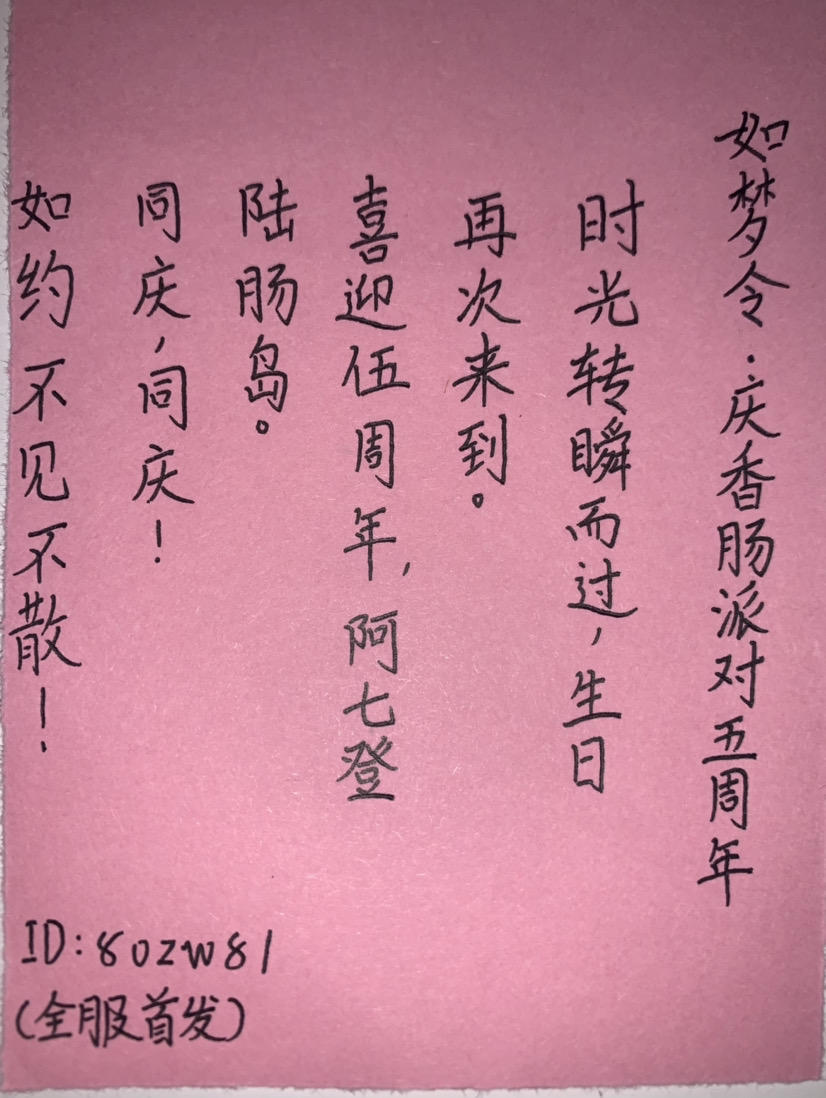 如梦令：庆香肠派对五周年
时光转瞬而过，生日
再次来到。
喜迎伍周年，阿七登
陆肠岛。
同庆，同庆！
如约不见不散！
ID:80zw81
(全服首发)